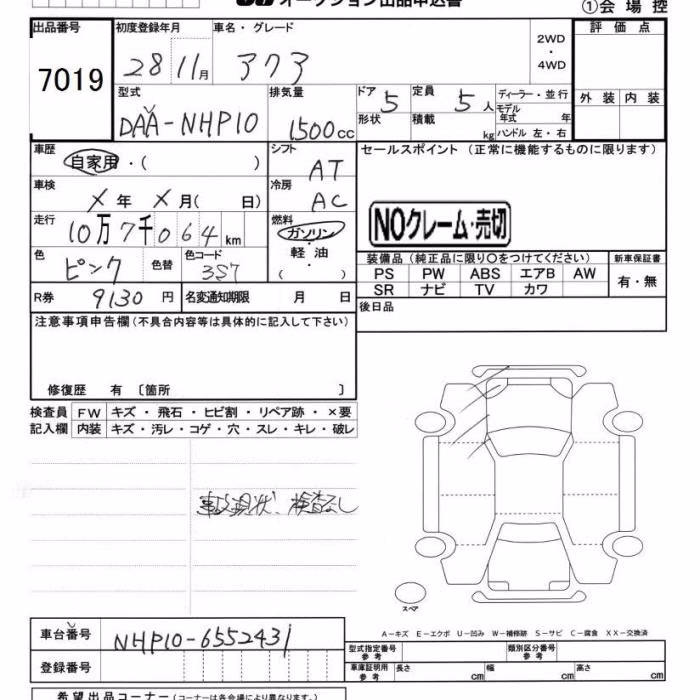 オークション出品申込書
①会場控
出品番号 初度登録年月 車名・グレード 2WD・4WD 評価点
7019 28 11月 アクア
型式 排気量 ドア 5 定員 5人 ディーラー・並行 外装 内装
DAA-NHP10 1500cc 形状 積載 kg モデル年式 年
ハンドル 左・右
車歴 自家用・( ) シフト AT セールスポイント (正常に機能するものに限ります)
車検 X年 X月( 日) 冷房 AC
走行 10万7千064km 燃料 ガソリン・軽油 ( )
NOクレーム・売切
色 ピンク 色替 色コード 3S7
装備品 (純正品に限り○をつけてください) 新車保証書
PS PW ABS エアB AW 有・無
SR ナビ TV カワ
R券 9130円 名変通知期限 月 日 後日品
注意事項申告欄(不具合内容等は具体的に記入して下さい)
修復歴 有 〔箇所 〕
検査員 FW キズ・飛石・ヒビ割・リペア跡・×要
記入欄 内装 キズ・汚レ・コゲ・穴・スレ・キレ・破レ
事故現状、検査なし
スペア
A-キズ E-エクボ U-凹み W-補修跡 S-サビ C-腐食 XX-交換済
車台番号 NHP10-6552431
型式指定番号 参考 類別区分番号 参考
登録番号 車庫証明用 参考 長さ cm 幅 cm 高さ cm
希望出品コーナー(コーナーは各会場により異なります。)